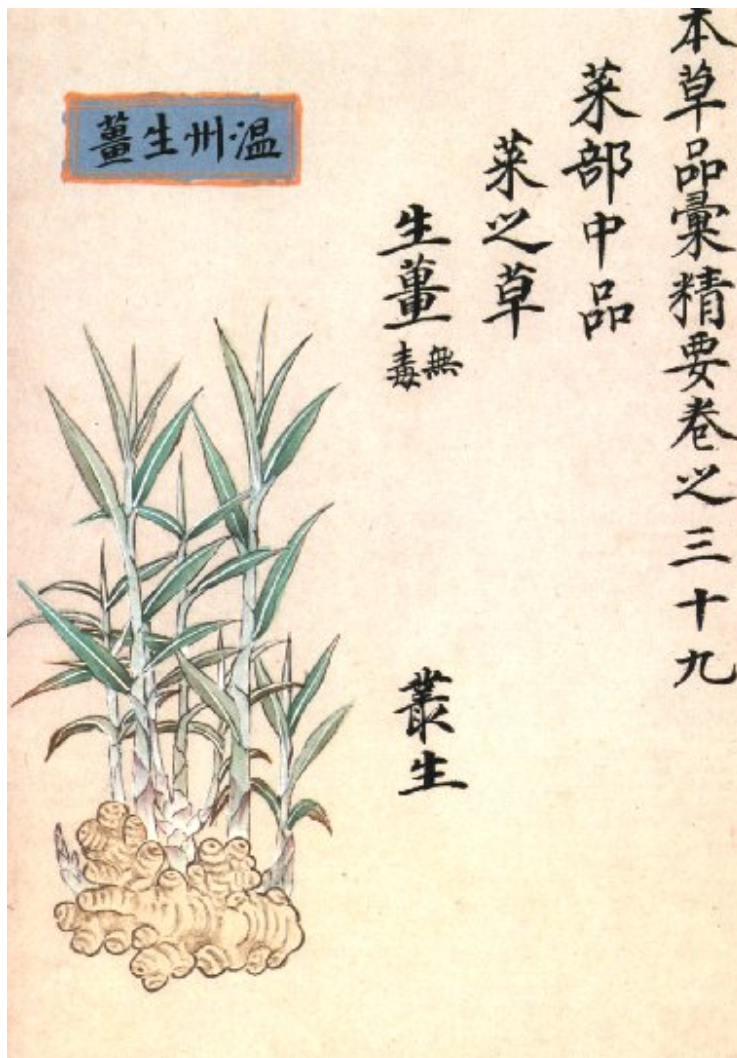 本草品彙精要卷之三十九
菜部中品
菜之草
生薑 無毒
叢生
溫州生薑